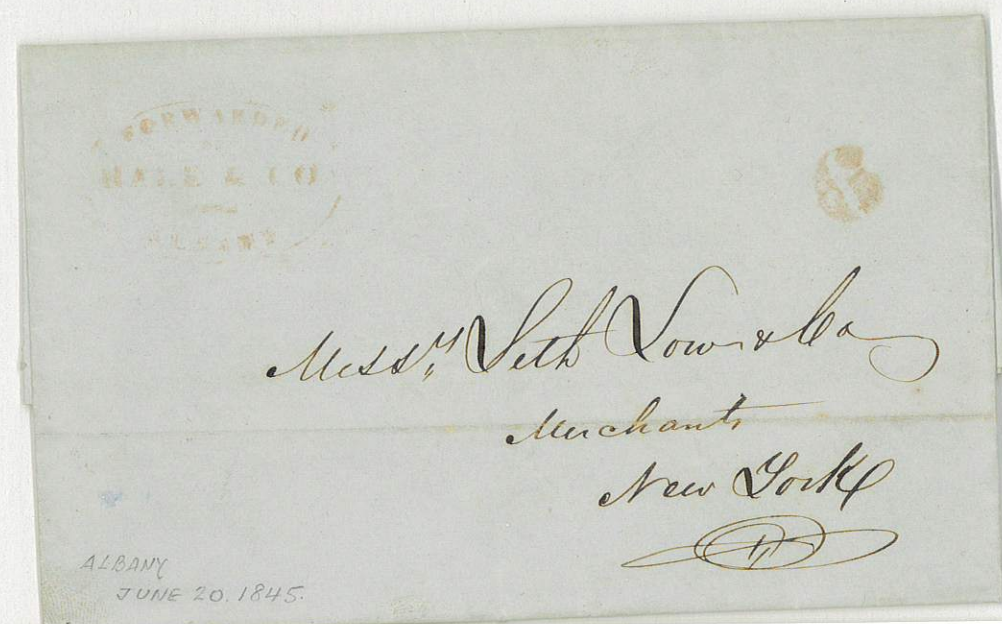 FORWARDED
HALE & CO
ALBANY
6
Mess.rs Seth Low & Co
Merchants
New York
ALBANY
JUNE 20. 1845.